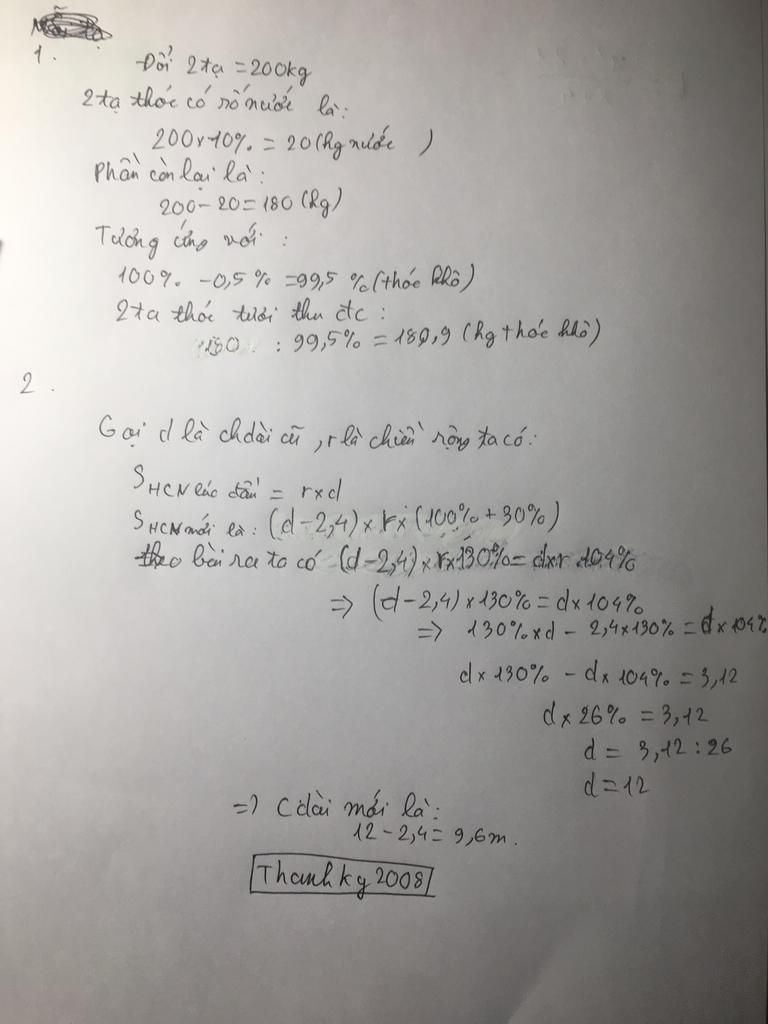 1.
Đổi 2 tạ = 200kg
2 tạ thóc có số nước là:
200 x 10% = 20 (kg nước )
Phần còn lại là:
200 - 20 = 180 (kg)
Tương ứng với :
100% - 0,5% = 99,5 % (thóc khô)
2 tạ thóc tươi thu đc :
180 : 99,5% = 180,9 (kg thóc khô)
2 .
Gọi d là chdài cũ , r là chiều rộng ta có:
SHCN lúc đầu = r x d
SHCN mới là: (d - 2,4) x r x (100% + 30%)
theo bài ra ta có (d - 2,4) x r x 130% = dxr 104%
=> (d - 2,4) x 130% = d x 104%
=> 130% x d - 2,4 x 130% = d x 104%
d x 130% - d x 104% = 3,12
d x 26% = 3,12
d = 3,12 : 26
d = 12
=> Cdài mới là:
12 - 2,4 = 9,6m.
Thanhkg 2008